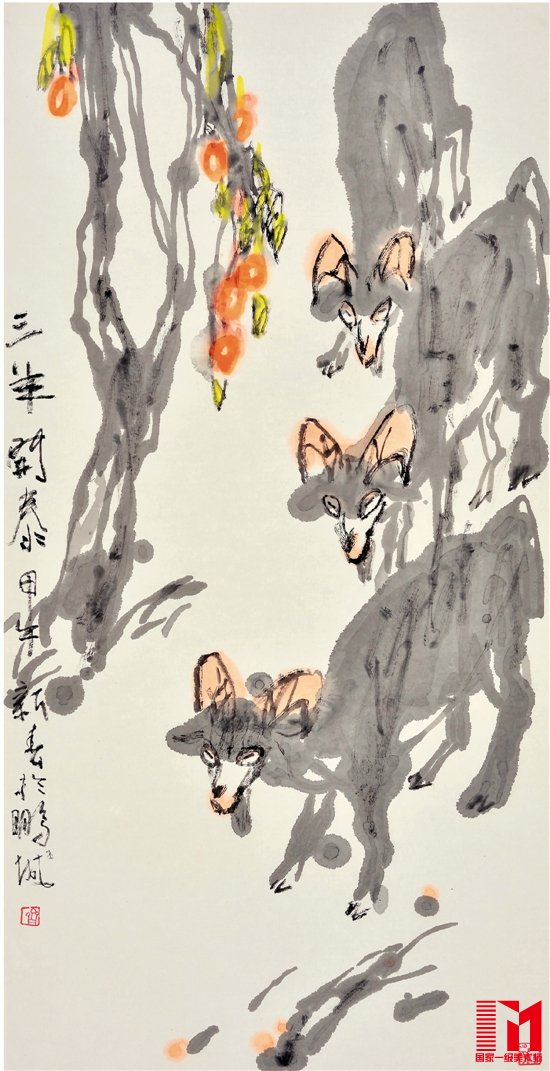 三羊開泰甲午新春於鵬城
国家一级美术师